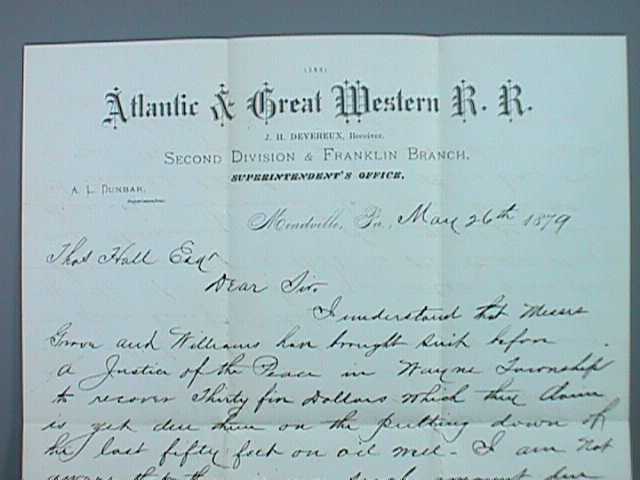 Atlantic & Great Western R. R.
J. H. DEVEREUX, Receiver.
SECOND DIVISION & FRANKLIN BRANCH,
SUPERINTENDENT'S OFFICE,
A. L. DUNBAR,
Superintendent.
Meadville, Pa., May 26th 1879
Thos Hall Esqr
Dear Sir.
I understand that Messrs
Grove and Williams have brought suit before
a Justice of the Peace in Wayne Township
to recover Thirty five Dollars which they claim
is yet due them on the putting down of
the last fifty feet on oil well - I am not
such amount due